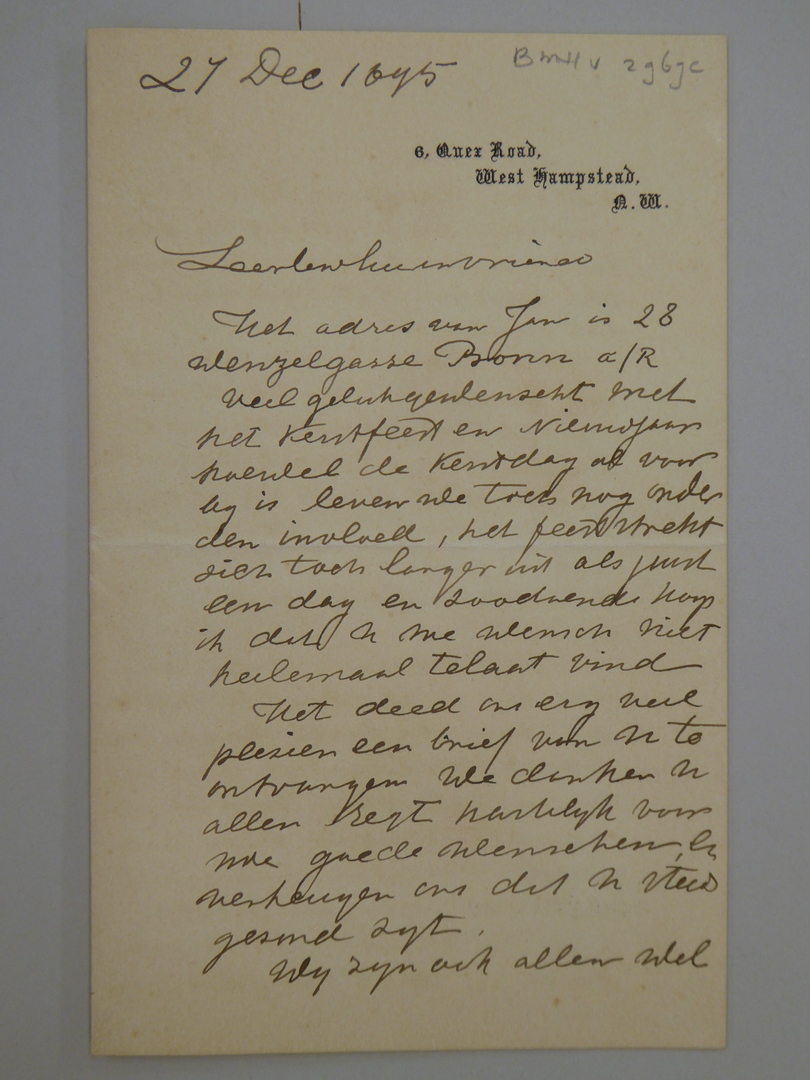 27 Dec 1895
BmH v 2969c
6, Quex Road,
West Hampstead,
N.W.
Zeerlewhuinvriend
Het adres van Jan is 28
Wenzelgasse Bonn a/R
Veel gelukgewenscht met
het Kerstfeest en Nieuwjaar
hoewel de Kerstdag al voor
by is leven we toch nog onder
den invloed, het feest strekt
zich toch langer uit als juist
een dag en zoodoende hoop
ik dat U me wensch niet
heelemaal telaat vind
Het deed ons erg veel
plesier een brief van U te
ontvangen We danken U
allen regt hartelyk voor
uwe goede wenschen, en
verheugen ons dat U steeds
gezond zyt.
Wy zyn ook allen wel